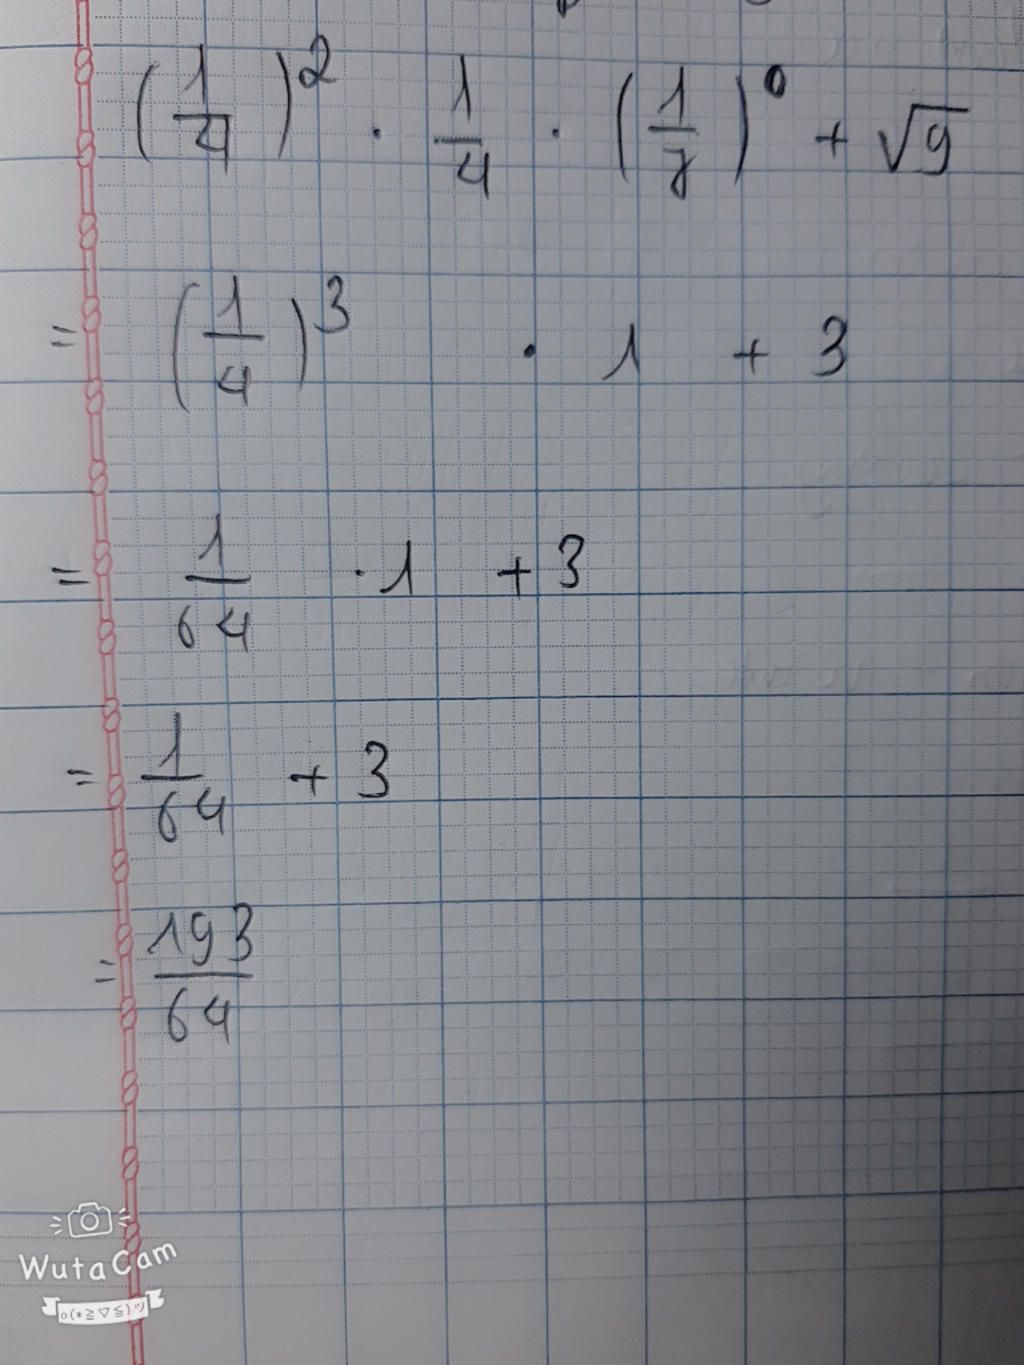 (1/4)² · 1/4 · (1/7)⁰ + √9
= (1/4)³ · 1 + 3
= 1/64 · 1 + 3
= 1/64 + 3
= 193/64
WutaCam
o(*≧▽≦)ツ